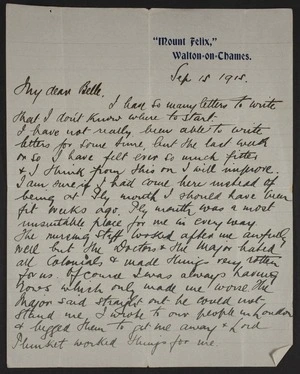 "Mount Felix,"
Walton-on-Thames.
Sep 15 1915.
My dear Belle.
I have so many letters to write
that I don't know where to start.
I have not really been able to write
letters for some time, but the last week
or so I have felt ever so much fitter
& I think from this on I will improve.
I am sure if I had come here instead of
being at Plymouth I should have been
fit weeks ago. Plymouth was a most
unsuitable place for me in every way
The nursing staff worked after me awfully
well but the Doctors & the Major hated
all Colonials & made things very rotten
for us. Of course I was always having
rows which only made me worse. The
Major said straight out he could not
stand me. I wrote to our people in London
& begged them to get me away & Lord
Plunket worked things for me.